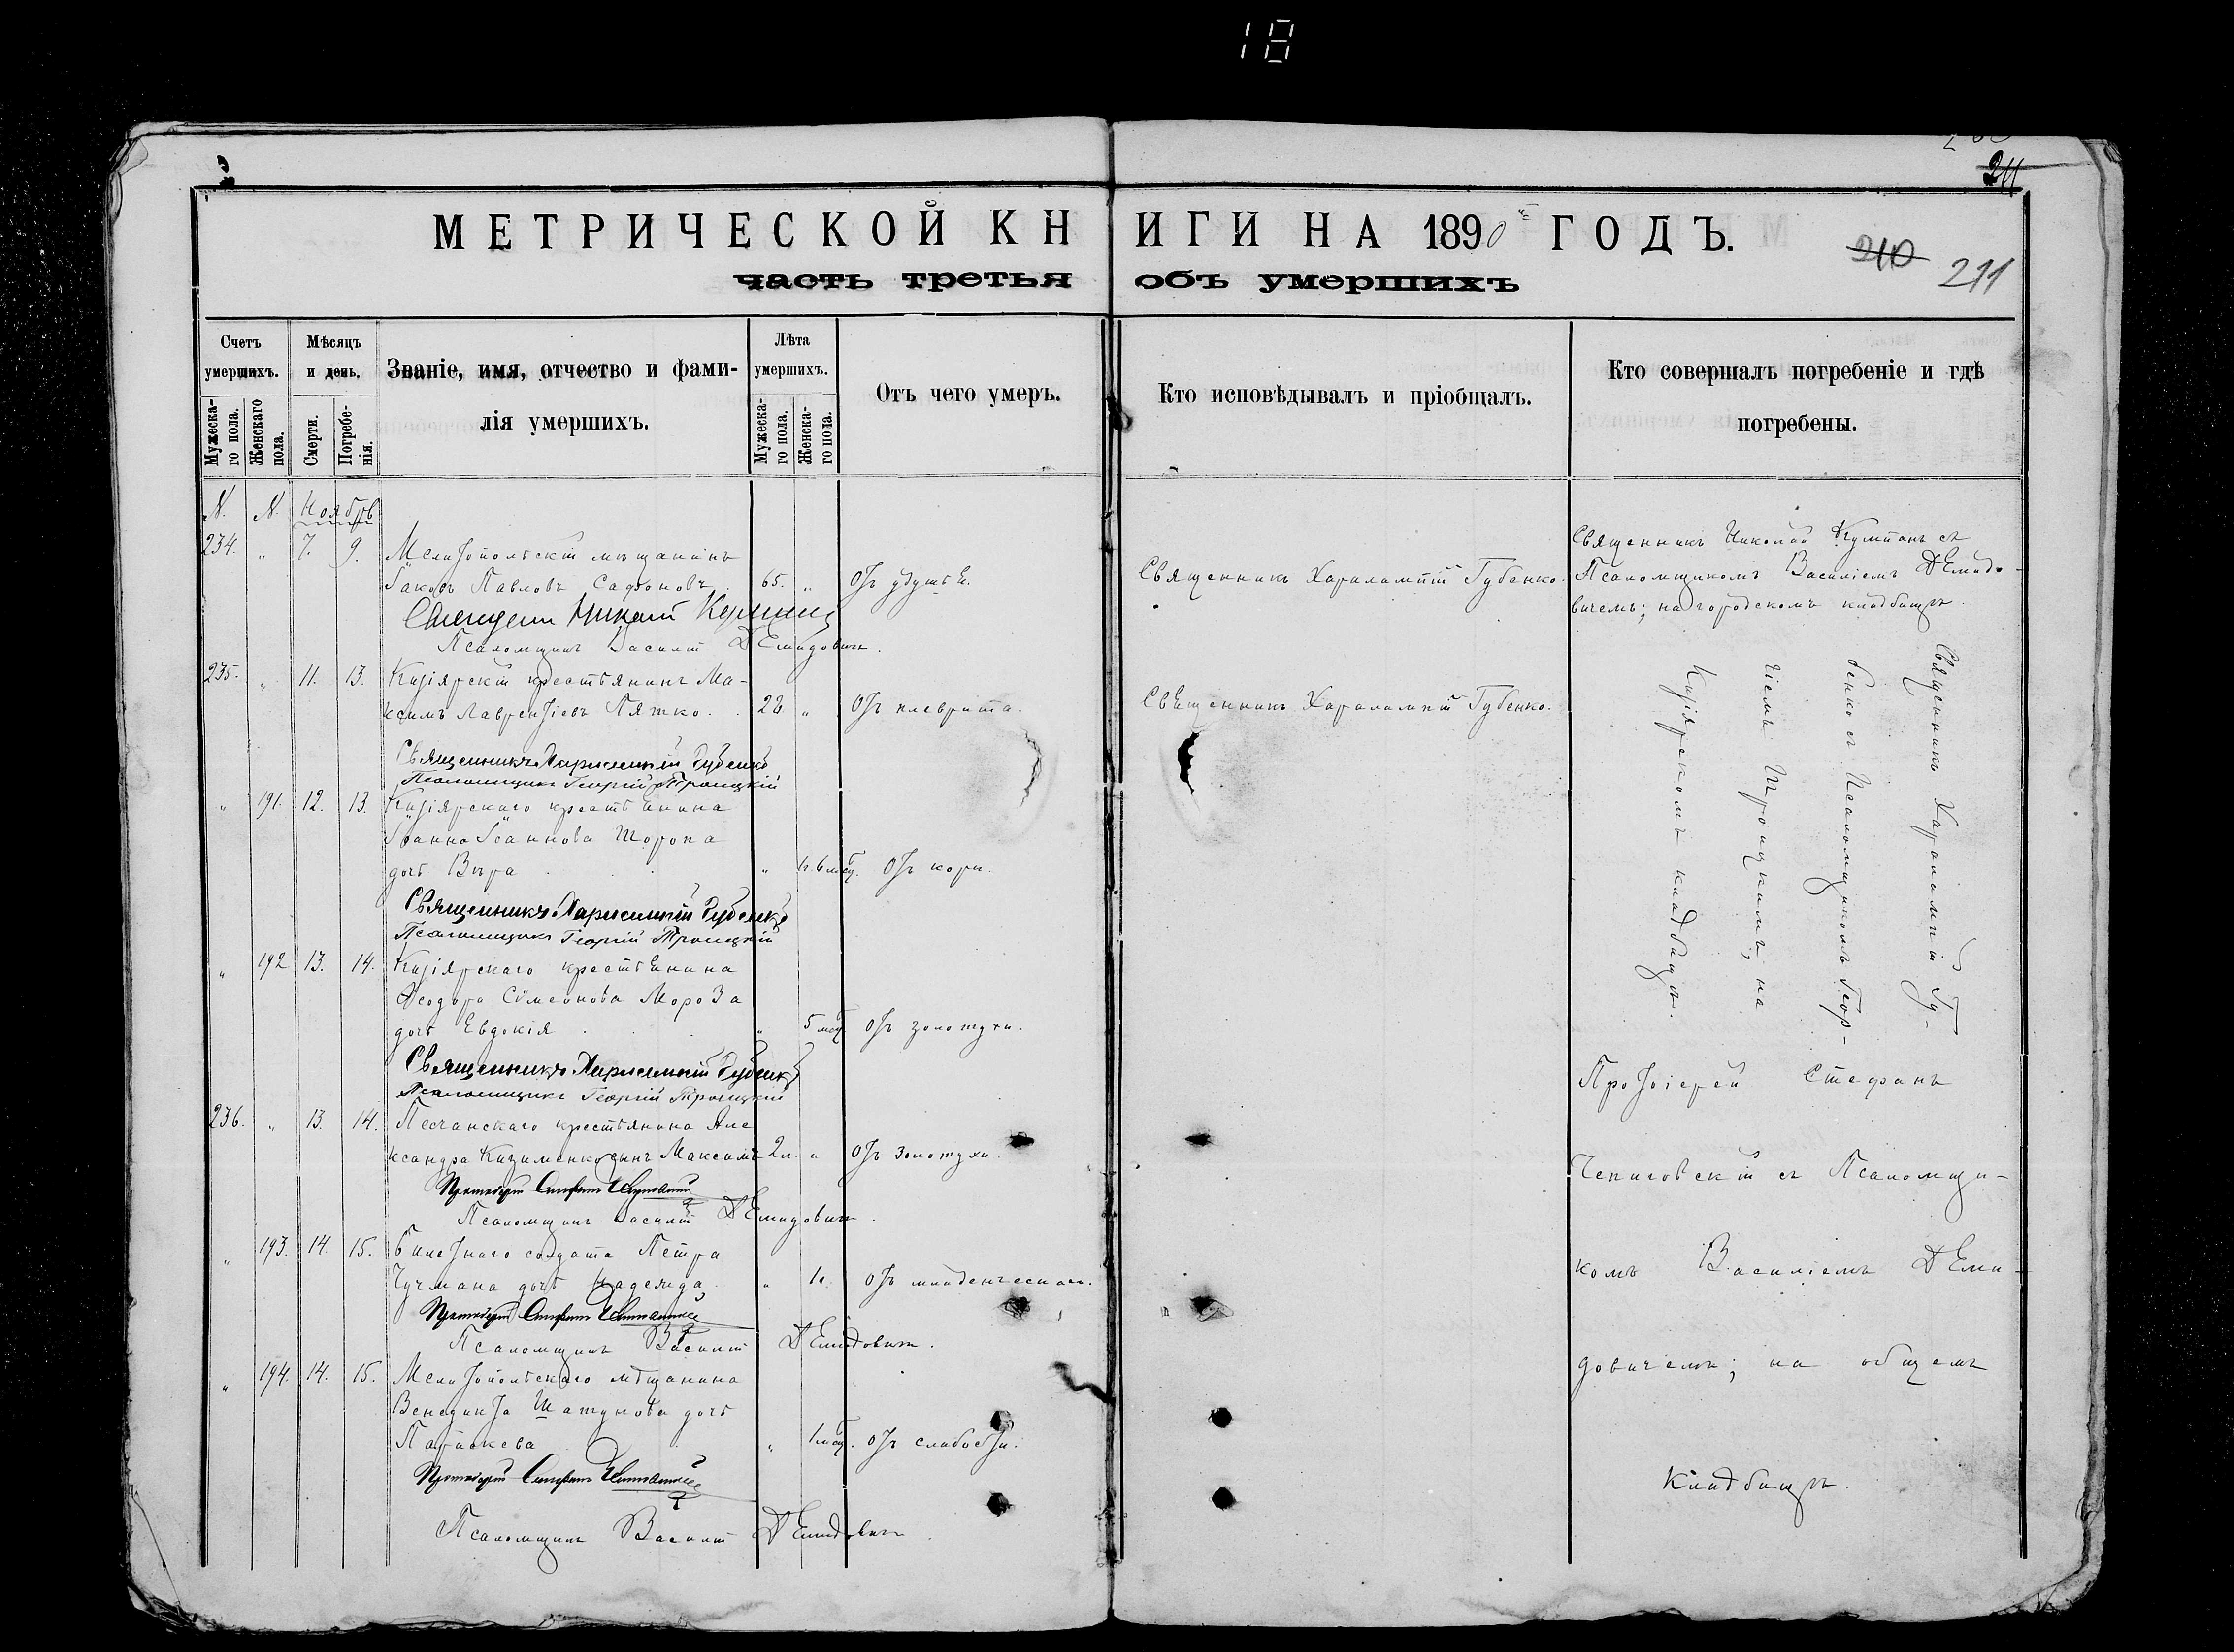 18
211
МЕТРИЧЕСКОЙ КНИГИ НА 1890й ГОДЪ.
210 211
часть третья объ умершихъ
Счетъ умершихъ.
Мужеска-го пола.
Женскаго пола.
Мѣсяцъ и день.
Смерти.
Погребе-нія.
Званіе, имя, отчество и фами-
лія умершихъ.
Лѣта умершихъ.
Мужеска-го пола.
Женска-го пола.
Отъ чего умеръ.
Кто исповѣдывалъ и пріобщалъ.
Кто совершалъ погребеніе и гдѣ
погребены.
N. N. Ноябрь
234. " 7. 9. Мелитопольскій мѣщанинъ
Іаковъ Павловъ Сафоновъ. 65. " Отъ удушья.
Священникъ Харалампій Губенко.
Священникъ Николай съ
Псаломщикомъ Василіемъ Демидо-
вичемъ; на городскомъ кладбищѣ.
Священникъ Николай
Псаломщикъ Василій Демидовичъ.
235. " 11. 13. Кизіярскій крестьянинъ Ма-
ксимъ Лаврентіевъ Пятко. " Отъ плеврита.
Священникъ Харалампій Губенко.
Священникъ Харалампій Губенко
Псаломщикъ Георгій Троицкій
" 191. 12. 13. Кизіярскаго крестьянина
Іоанна Іоаннова Шоропа
дочь Вѣра " Отъ кори.
Священникъ Харалампій Губенко
Псаломщикъ Георгій Троицкій
" 192 13. 14. Кизіярскаго крестьянина
Ѳеодора Сѵмеонова Мороза
дочь Евдокія " 5 мѣс. Отъ золотухи.
Священникъ Харалампій Губенко
Псаломщикъ Георгій Троицкій
Священникъ Харалампій Гу-
бенко съ Псаломщикомъ Геор-
гіемъ Троицкимъ, на
Кизіярскомъ кладбищѣ.
236. " 13. 14. Песчанскаго крестьянина Але
ксандра Кизименко сынъ Максимъ 2 л. " Отъ золотухи.
Протоіерей Стефанъ
Псаломщикъ Василій Демидовичъ.
" 193. 14. 15. Билетнаго солдата Петра
Чучмана дочь Надежда. " 1 г. Отъ младенческаго.
Протоіерей Стефанъ
Псаломщикъ Василій Демидовичъ.
" 194. 14. 15. Мелитопольскаго мѣщанина
Венедикта Шатунова дочь
Параскева " 1 мѣс. Отъ слабости.
Протоіерей Стефанъ
Псаломщикъ Василій Демидовичъ.
Протоіерей Стефанъ
съ Псаломщи-
комъ Василіемъ Деми-
довичемъ; на общемъ
кладбищѣ.